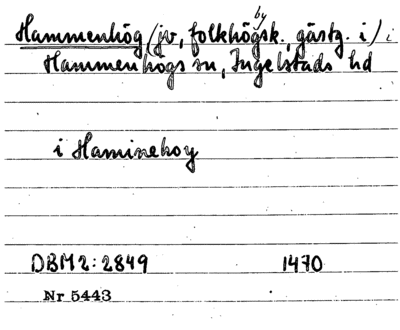 Hammenhög (jv, folkhögsk., by gästg. i) i
Hammenhögs sn, Ingelstads hd
i Haminehoy
DBM 2:2849 1470
Nr 5443